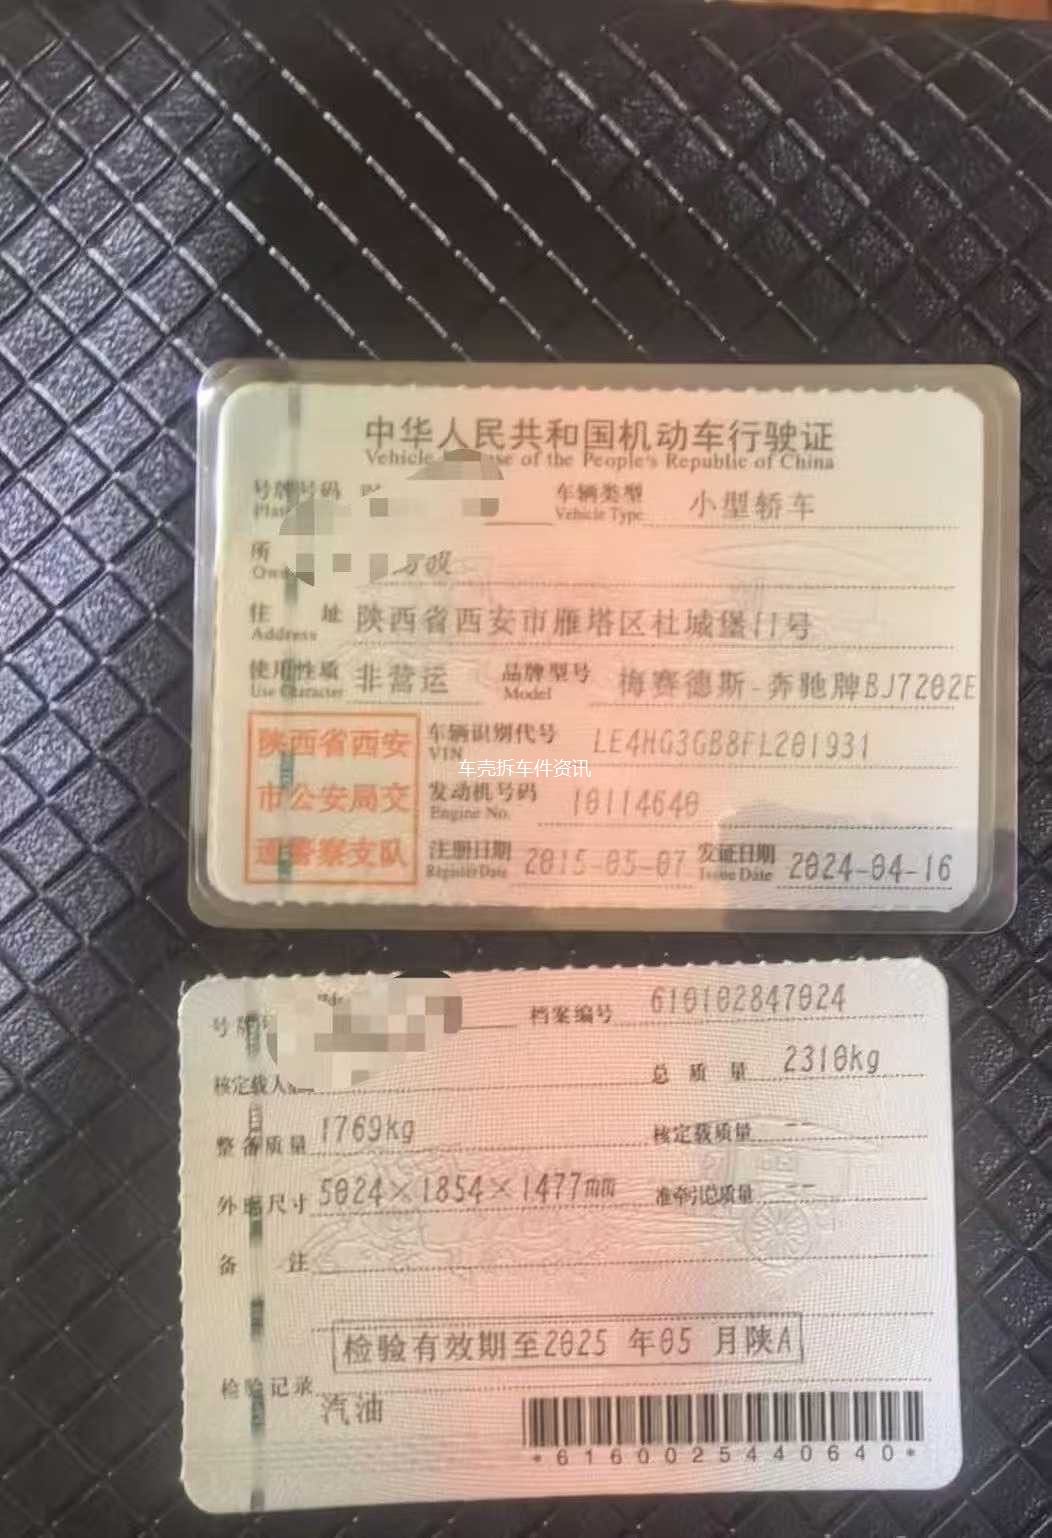 中华人民共和国机动车行驶证
Vehicle of the People's Republic of China
号牌号码 车辆类型 小型轿车
Vehicle Type
所
住 址 陕西省西安市雁塔区杜城堡11号
Address
使用性质 非营运 品牌型号 梅赛德斯-奔驰牌BJ7202E
Use Character Model
陕西省西安
市公安局交
通警察支队
车辆识别代号 LE4HG3GB8FL201931
VIN
车壳拆车件资讯
发动机号码 10114640
Engine No.
注册日期 2015-05-07 发证日期 2024-04-16
Register Date Issue Date
号牌 档案编号 610102847024
核定载人
总质量 2310kg
整备质量 1769kg 核定载质量 --
外廓尺寸 5024×1854×1477mm 准牵引总质量 --
备 注
检验有效期至2025 年05 月陕A
检验记录
汽油
*6160025440640*